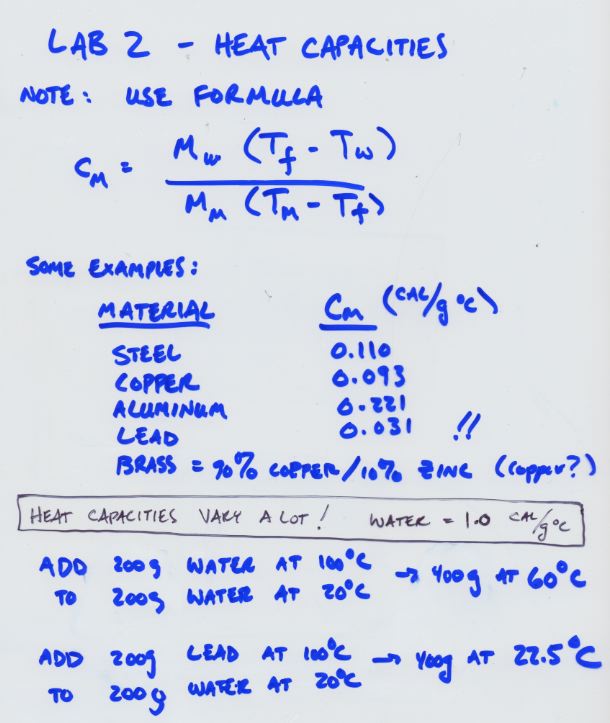 LAB 2 - HEAT CAPACITIES
NOTE: USE FORMULA
C_M = M_w (T_f - T_w) / M_M (T_M - T_f)
SOME EXAMPLES:
MATERIAL C_M (CAL/g °C)
STEEL 0.110
COPPER 0.093
ALUMINUM 0.221
LEAD 0.031 !!
BRASS = 90% COPPER/10% ZINC (copper?)
HEAT CAPACITIES VARY A LOT! WATER = 1.0 CAL/g°C
ADD 200g WATER AT 100°C → 400g AT 60°C
TO 200g WATER AT 20°C
ADD 200g LEAD AT 100°C → 400g AT 22.5°C
TO 200g WATER AT 20°C